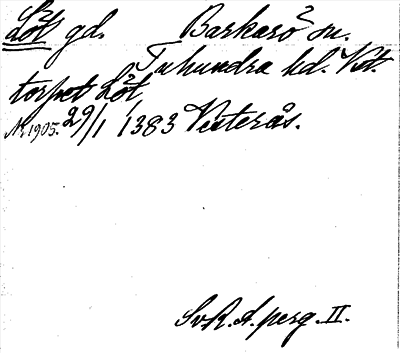 Löt gd. Barkarö sn.
Tuhundra hd. Vst.
torpet Löt,
Nr 1905. 29/1 1383 Vesterås.
Sv. R. A. perg. II.